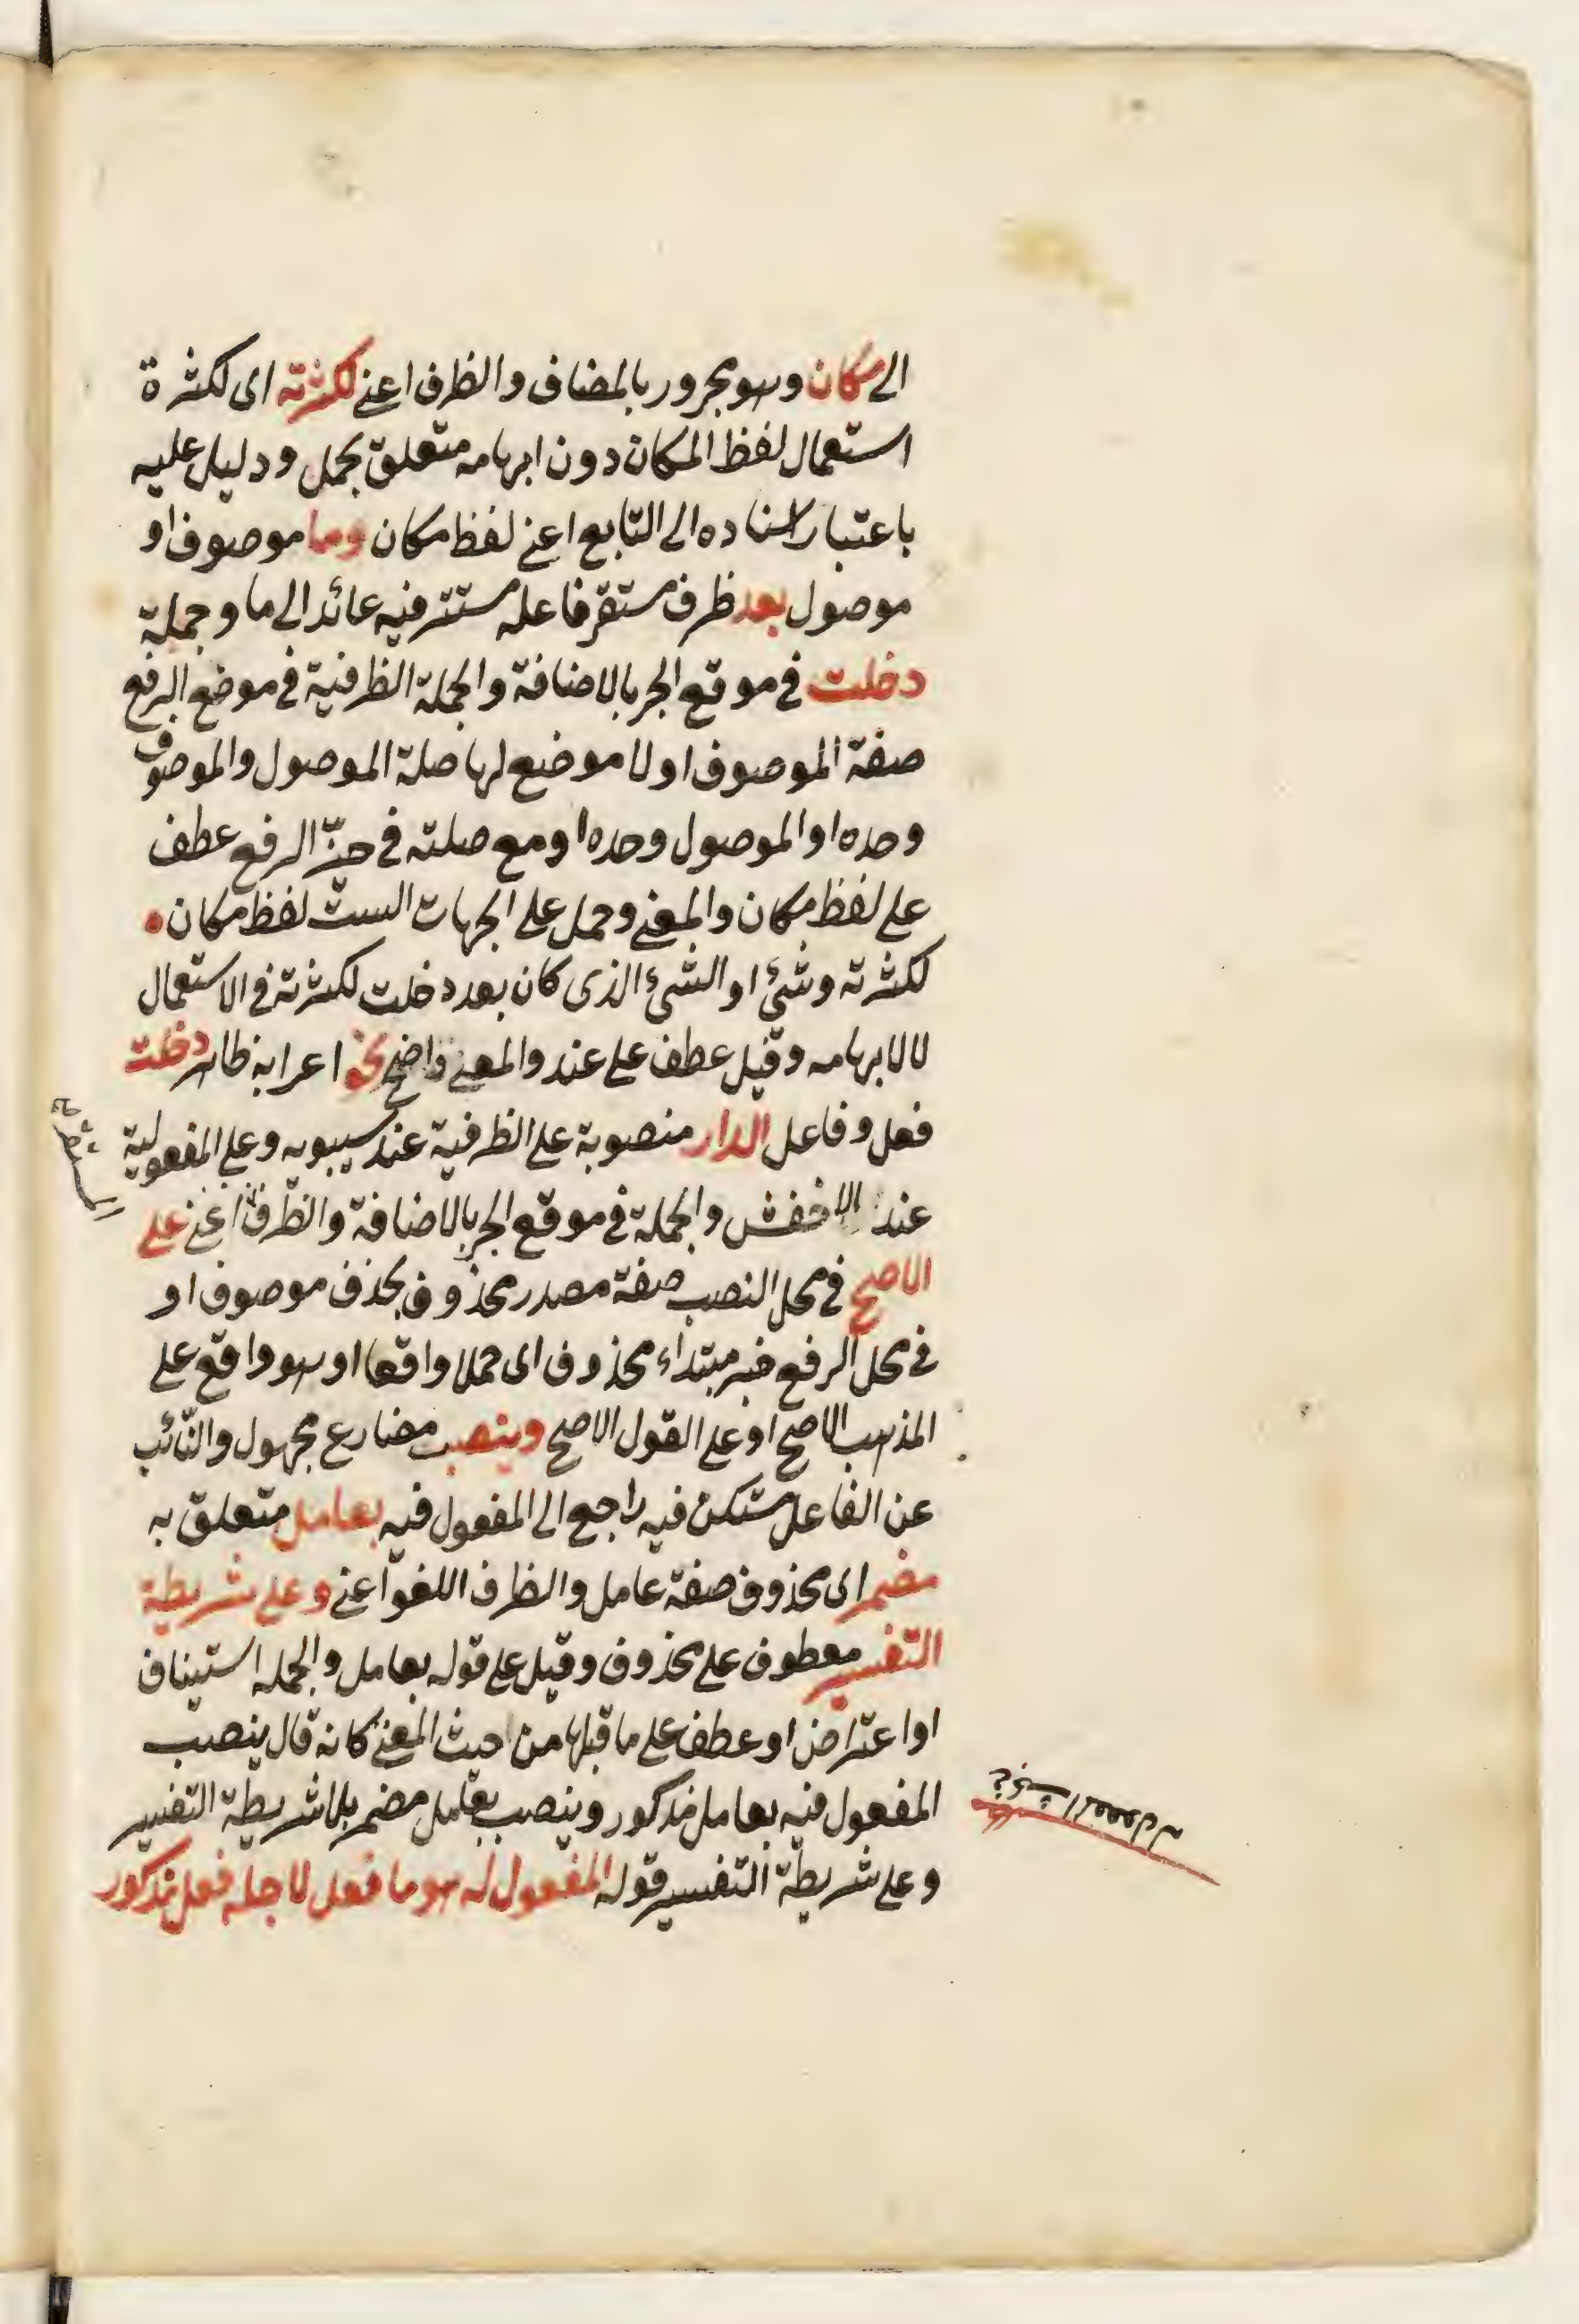 الى مكان وهو مجرور بالمضاف والظرف اعنى لكثرته اى لكثرة
استعمال لفظ المكان دون ابهامه متعلق بحمل ودليل عليه
باعتبار اسناده الى التابع اعنى لفظ مكان وما موصوف او
موصول بعد ظرف مستقر فاعله مستتر فيه عائد الى ما وجملة
دخلت فى موقع الجر بالاضافة والجملة الظرفية فى موضع الرفع
صفة الموصوف او لا موضع لها صلة الموصول والموصوف
وحده او الموصول وحده او مع صلته فى حيّز الرفع عطف
على لفظ مكان والمعنى وحمل على الجهات الست لفظ مكان
لكثرته وشئ او الشئ الذى كان بعد دخلت لكثرته فى الاستعمال
لا لابهامه وقيل عطف على عند والمعنى واضح نحو اعرابه ظاهر دخلت
فعل وفاعل الدار منصوبة على الظرفية عند سيبويه وعلى المفعولية
عند الاخفش والجملة فى موقع الجر بالاضافة والظرف اعنى على
الاصح فى محل النصب صفة مصدر محذوف بحذف موصوف او
فى محل الرفع خبر مبتداء محذوف اى حملا واقعا او هو واقع على
المذهب الاصح او على القول الاصح وينصب مضارع مجهول والنّائب
عن الفاعل مستكن فيه راجع الى المفعول فيه بعامل متعلق به
مضمر اى محذوف صفة عامل والظرف اللغو اعنى وعلى شريطة
التفسير معطوف على محذوف وقيل على قوله بعامل والجمله استيناف
او اعتراض او عطف على ما قبلها من حيث المعنى كانه قال ينصب
المفعول فيه بعامل مذكور وينصب بعامل مضمر بلا شريطة التفسير
وعلى شريطة التفسير قوله المفعول له هو ما فعل لاجله فعل مذكور
المفعول له